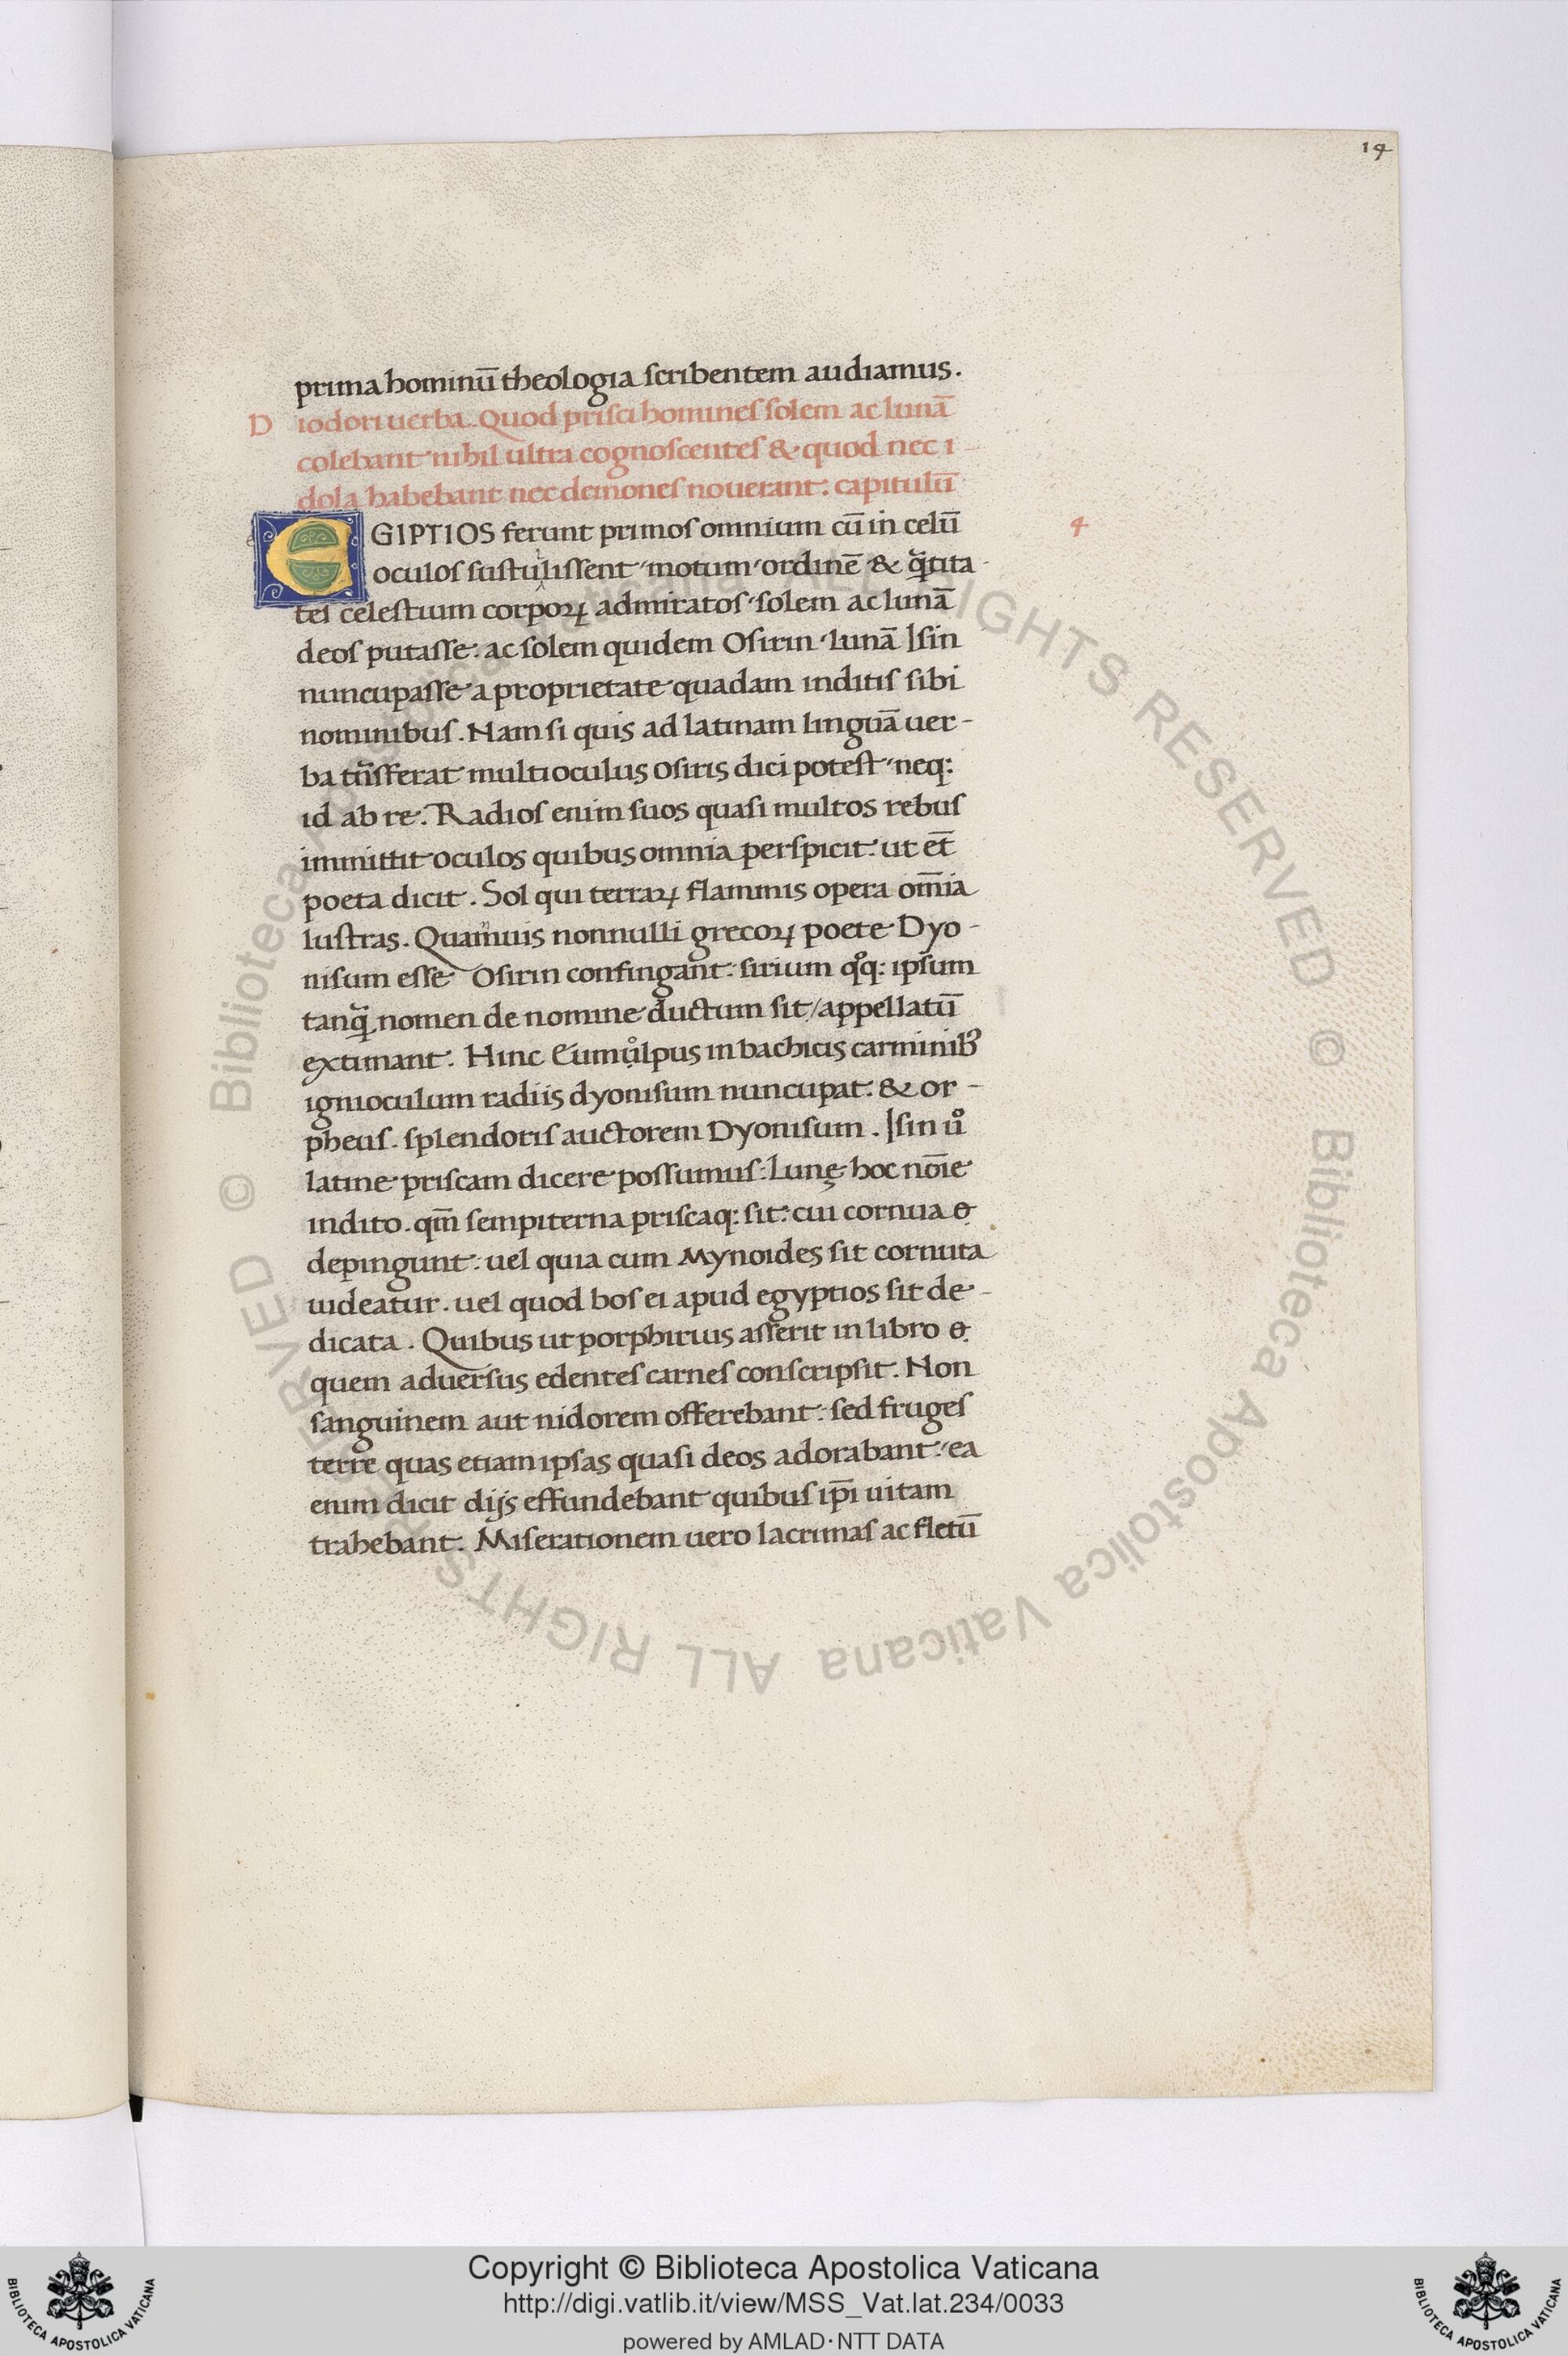 14
prima hominū theologia scribentem audiamus.
Diodori uerba. Quod prisci homines solem ac lunā
colebant nihil ultra cognoscentes & quod nec i
dola habebant nec demones nouerant: capitulū 4
EGIPTIOS ferunt primos omnium cū in celū
oculos sustulissent motum ordinē & qᷓtita-
tes celestium corpoꝝ admiratos solem ac lunā
deos putasse: ac solem quidem Osirin lunā Isin
nuncupasse a proprietate quadam inditis sibi
nominibus. Nam si quis ad latinam linguā uer-
ba trᷓsferat multioculus osiris dici potest neq:
id ab re. Radios enim suos quasi multos rebus
immittit oculos quibus omnia perspicit: ut et̄
poeta dicit. Sol qui terraꝝ flammis opera om̄ia
lustras. Quamuis nonnulli grecoꝝ poete Dyo-
nisum esse Osirin confingant: sirium qͦq: ipsum
tanqᷓ nomen de nomine ductum sit / appellatū
extimant. Hinc Eumͦlpus in bachicis carminibꝰ
ignioculum radiis dyonisum nuncupat: & or-
pheus. splendoris auctorem Dyonisum. Isin uͦ
latine priscam dicere possumus: Lunę hoc noīe
indito. qm̄ sempiterna priscaq: sit: cui cornua
depingunt: uel quia cum Mynoides sit cornuta
uideatur. uel quod bos ei apud egyptios sit de-
dicata. Quibus ut porphirius asserit in libro
quem aduersus edentes carnes conscripsit. Non
sanguinem aut nidorem offerebant: sed fruges
terre quas etiam ipsas quasi deos adorabant: ea
enim dicit dijs effundebant quibus ip̄i uitam
trahebant. Miserationem uero lacrimas ac fletū
© Biblioteca Apostolica Vaticana ALL RIGHTS RESERVED © Biblioteca Apostolica Vaticana ALL RIGHTS RESERVED
BIBLIOTECA APOSTOLICA VATICANA
Copyright © Biblioteca Apostolica Vaticana
http://digi.vatlib.it/view/MSS_Vat.lat.234/0033
powered by AMLAD·NTT DATA
BIBLIOTECA APOSTOLICA VATICANA